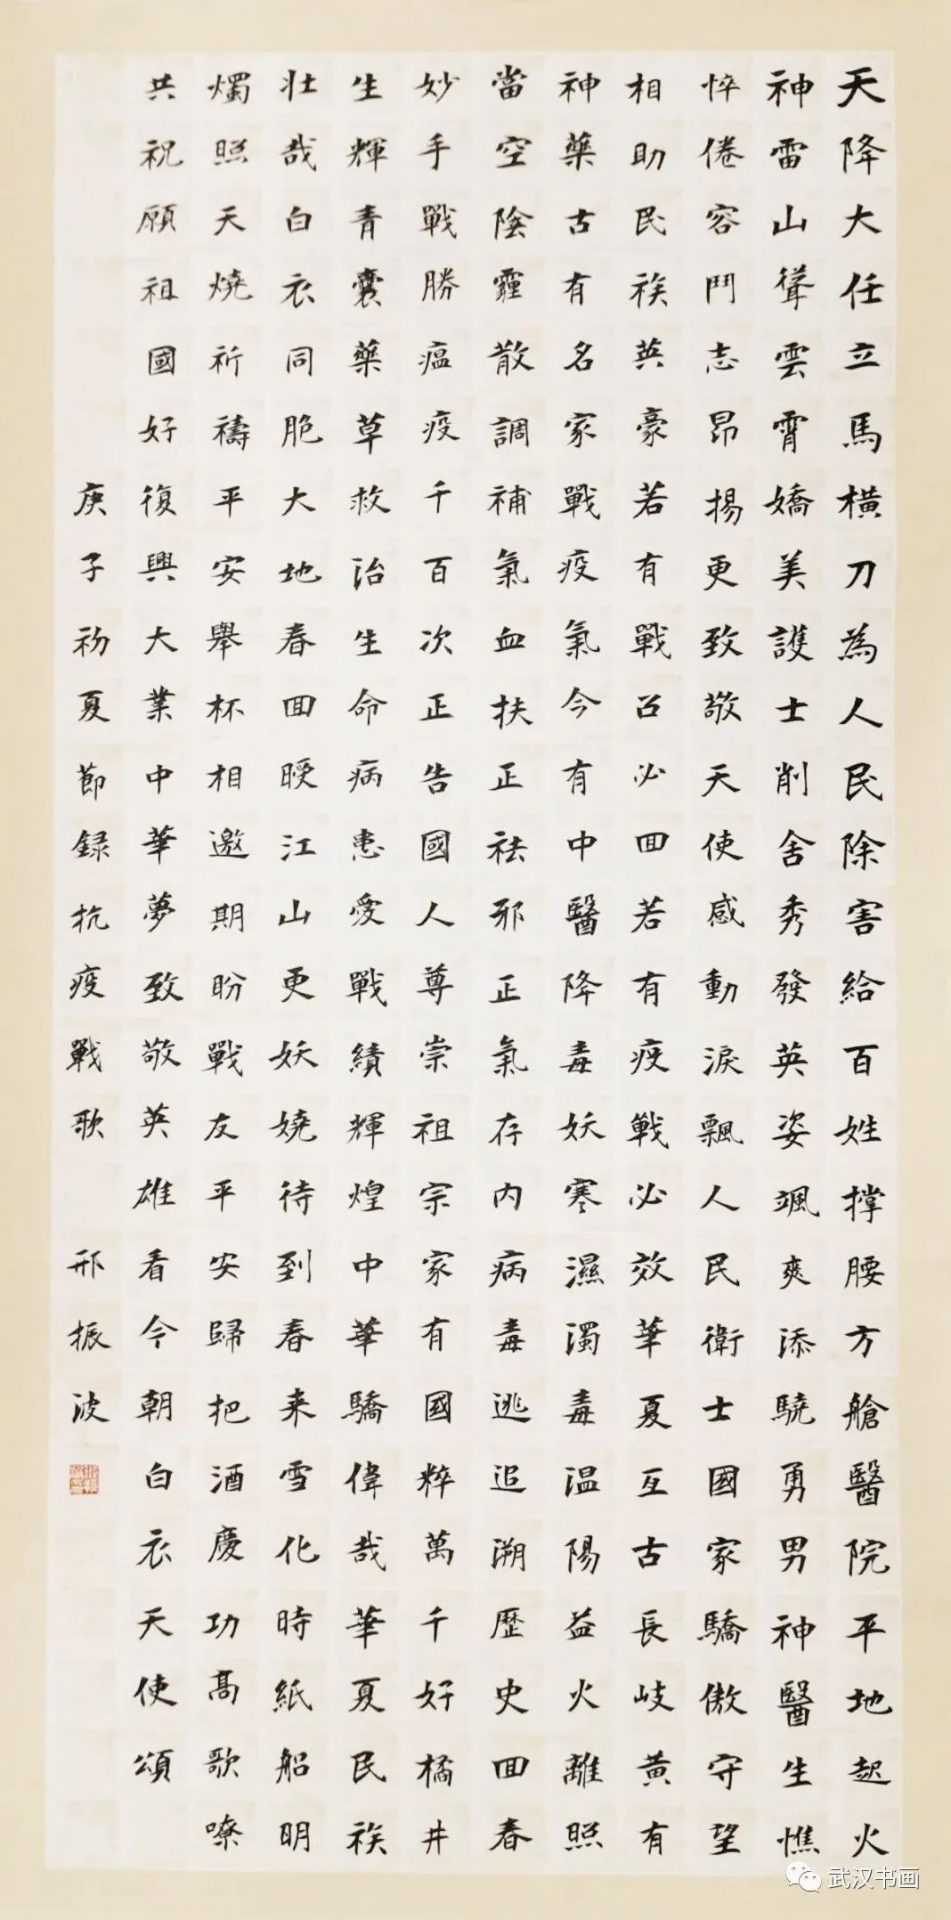 天降大任立馬橫刀為人民除害給百姓撐腰方艙醫院平地起火
神雷山聳雲霄嬌美護士削舍秀發英姿颯爽添驍勇男神醫生憔
悴倦容鬥志昂揚更致敬天使感動淚飄人民衛士國家驕傲守望
相助民族英豪若有戰召必回若有疫戰必效華夏互古長岐黃有
神藥古有名家戰疫氣今有中醫降毒妖寒濕濁毒温陽益火離照
當空陰霾散調補氣血扶正祛邪正氣存内病毒逃追溯歷史回春
妙手戰勝瘟疫千百次正告國人尊崇祖宗家有國粹萬千好橘井
生輝青囊藥草救治生命病患愛戰績輝煌中華驕偉哉華夏民族
壯哉白衣同胞大地春回暖江山更妖嬈待到春来雪化時紙船明
燭照天燒祈禱平安舉杯相邀期盼戰友平安歸把酒慶功高歌嘹
共祝願祖國好復興大業中華夢致敬英雄看今朝白衣天使頌
庚子初夏節録抗疫戰歌 邢振波
武汉书画